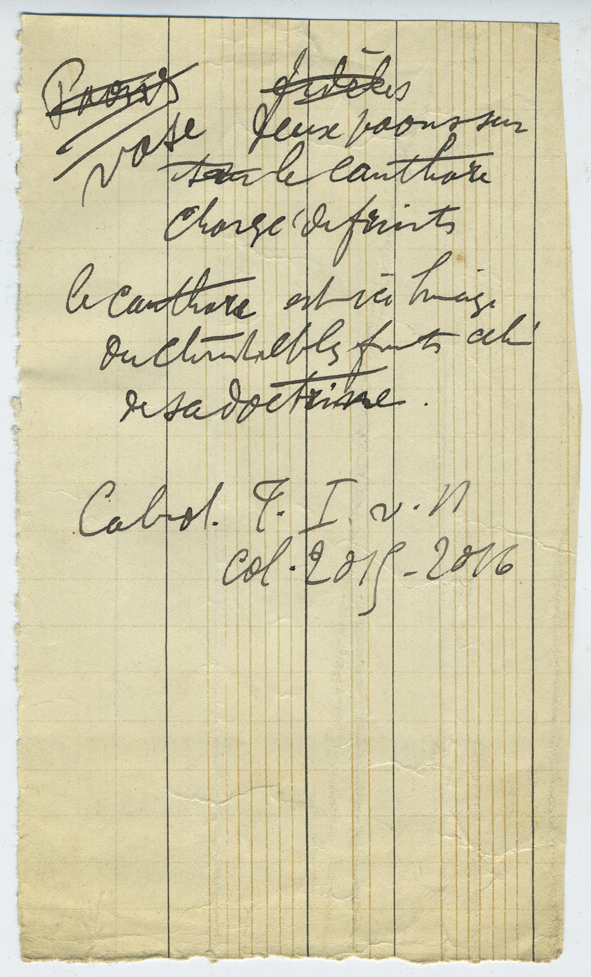 Paons fidèles
vase deux paons sur
sur le canthare
chargé de fruits
le canthare est ici l'image
du christ et les fruits celui
de sa doctrine.
Cabrol. T. I. v. II
col. 2015-2016